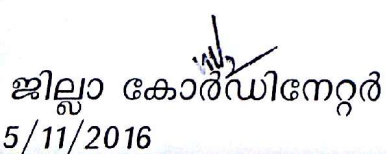 ജില്ലാ കോർഡിനേറ്റർ
5/11/2016